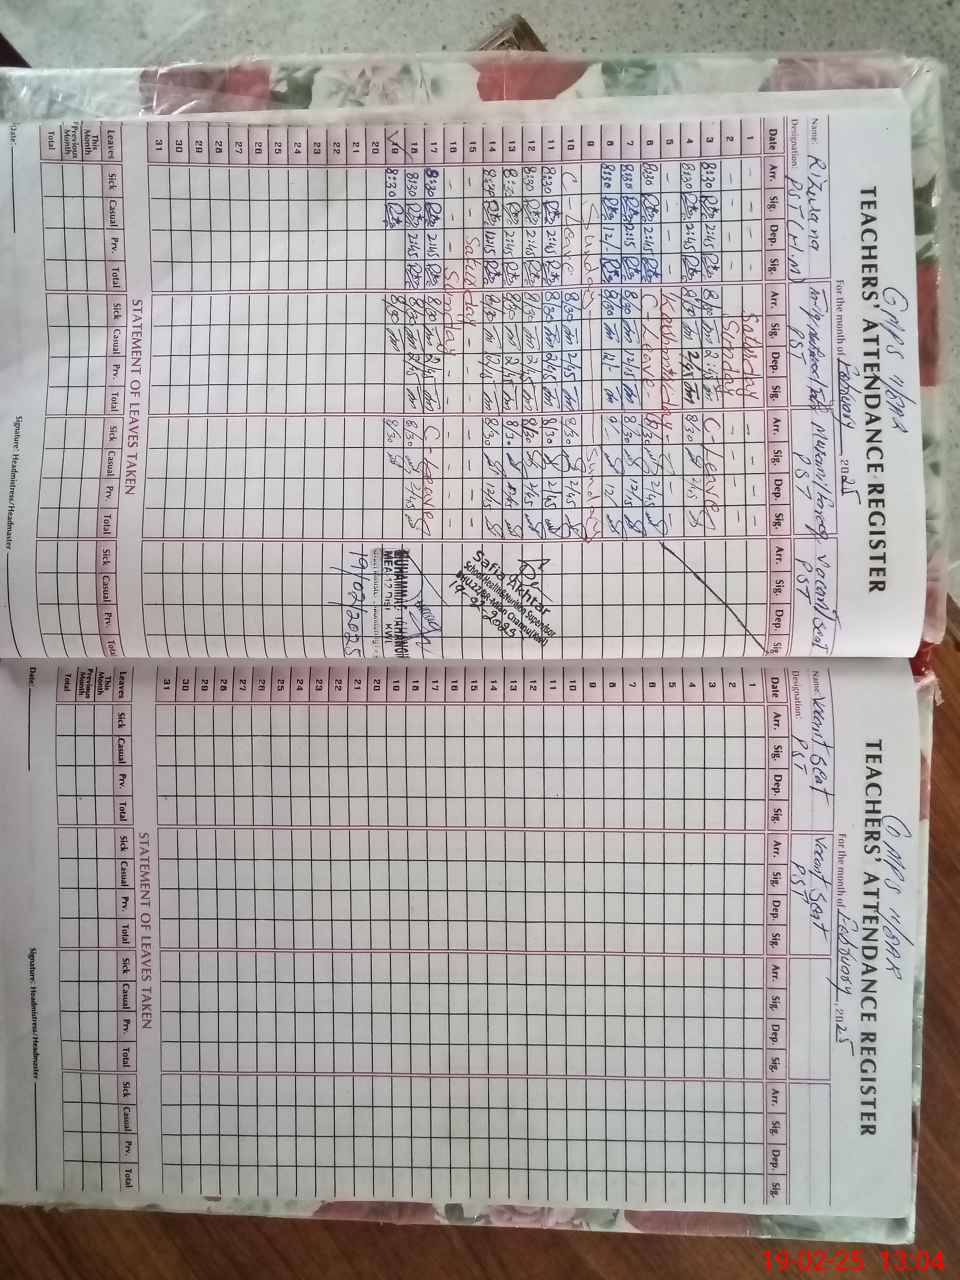 GMPS 11/8AR
TEACHERS' ATTENDANCE REGISTER
For the month of February, 2025
Name: Rizwana Vacant Seat
Designation: PST (H.M) PST PST PST
Date Arr. Sig. Dep. Sig. Arr. Sig. Dep. Sig. Arr. Sig. Dep. Sig. Arr. Sig. Dep. Sig.
1 - - - - Saturday - - - -
2 - - - - Sunday - - - -
3 8:30 2:45 8/30 2/45 C-Leave
4 8:30 2:45 8/30 2/45 8/30 2/45
5 - - - - Kashmir day - - - -
6 8:30 2:45 C-Leave 8/30 2/45
7 8:30 12:15 8/30 12/15 8/30 12/15
8 8:30 12/- 8/30 12/- 12/
9 Sunday Sunday
10 C-Leave 8/30 2/45 8/30 2/45
11 8:30 2:45 8/30 2/45 8/30 2/45
12 8:30 2:45 8/30 2/45 8/30 2/45
13 8:30 2:45 8/30 2/45 8/30 2/45
14 8:30 12:15 8/30 12/15 8/30 12/15
15 - - Saturday - - - -
16 - - - - Sunday - - - -
17 8:30 2:45 8/30 2/45 C-Leave
18 8:30 2:45 8/30 2/45 8/30 2/45
19 8:30 8/30 8/30
20
21
22
23
24
25
26
27
28
29
30
31
Safia Akhtar
School Health & Nutrition Supervisor
Mian Channu (KWL)
19-02-2025
MUHAMMAD
MEA-12 Dist KWL
19/02/2025
STATEMENT OF LEAVES TAKEN
Leaves Sick Casual Prv. Total Sick Casual Prv. Total Sick Casual Prv. Total Sick Casual Prv. Total
This Month
Previous Month
Total
Date: Signature: Headmistress/Headmaster
GMPS 11/8AR
TEACHERS' ATTENDANCE REGISTER
For the month of February, 2025
Name: Vacant Seat Vacant Seat
Designation: PST PST
Date Arr. Sig. Dep. Sig. Arr. Sig. Dep. Sig. Arr. Sig. Dep. Sig. Arr. Sig. Dep. Sig.
1
2
3
4
5
6
7
8
9
10
11
12
13
14
15
16
17
18
19
20
21
22
23
24
25
26
27
28
29
30
31
STATEMENT OF LEAVES TAKEN
Leaves Sick Casual Prv. Total Sick Casual Prv. Total Sick Casual Prv. Total Sick Casual Prv. Total
This Month
Previous Month
Total
Date: Signature: Headmistress/Headmaster
19-02-25 13:04